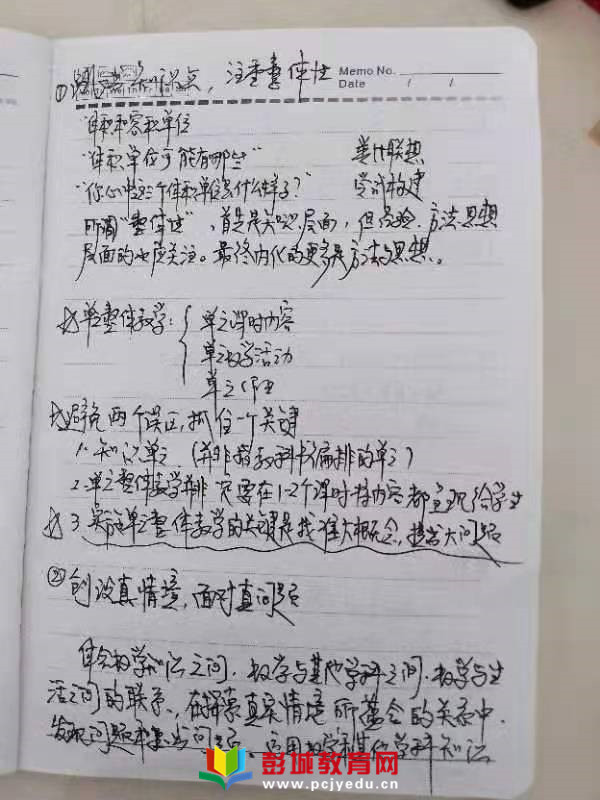 ① 知识点，注重整体性
Memo No.
Date / /
"体积和容积单位
"体积单位可能有哪些" 类比联想
"你心中这三个体积单位是什么样子？" 尝试构建
所谓"整体性"，首先是知识层面，但经验、方法、思想
层面的也应关注。最终内化的更多是方法与思想。
单元整体教学：单元课时内容
单元教学活动
单元作业
避免两个误区，抓住一个关键
1. 知识单元（并非指教科书编排的单元）
2. 单元整体教学并非一定要在1-2个课时将内容都呈现给学生
3. 实施单元整体教学的关键是找准大概念，提出大问题
② 创设真情境，面对真问题
体会数学知识之间、数学与其他学科之间、数学与生
活之间的联系，在探索真实情境所蕴含的关系中，
发现问题和提出问题，运用数学和其他学科知识
彭城教育网
www.pcjyedu.cn